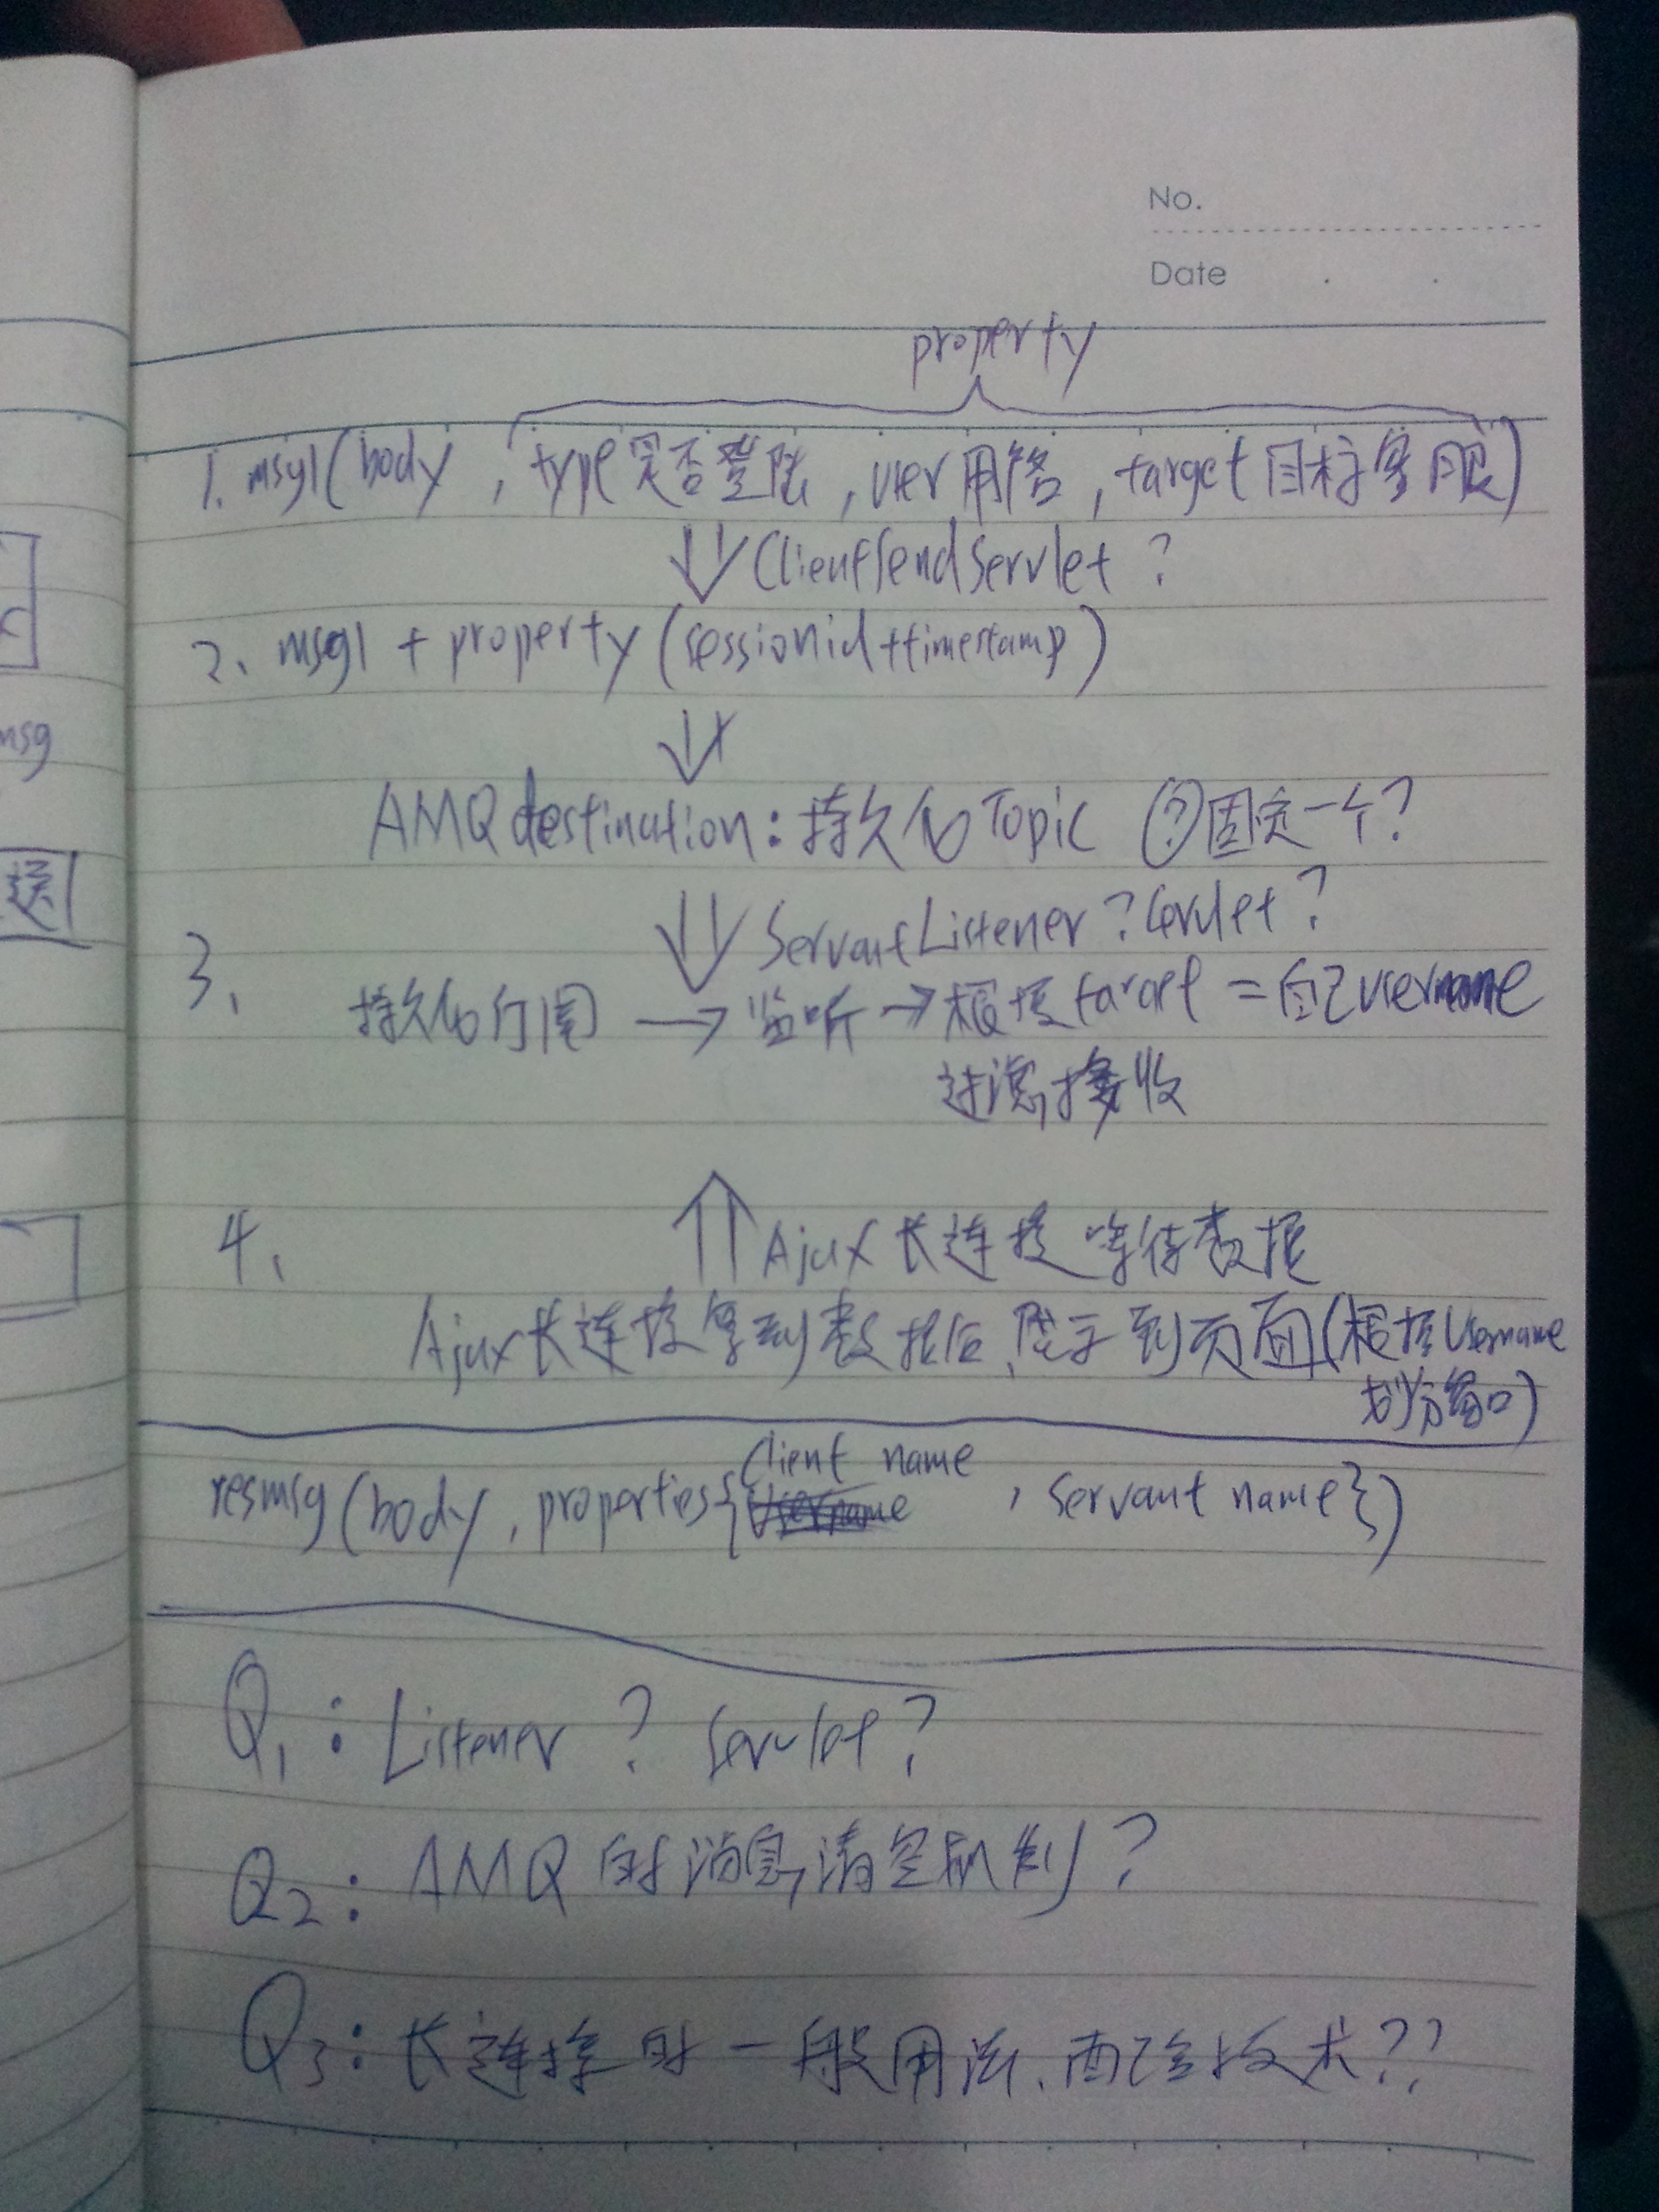 No.
Date
property
1. msg1(body , type 是否登陆 , user 用户名 , target 目标客服)
ClientSendServlet ?
2、 msg1 + property (sessionid+timestamp)
AMQ destination: 持久化 Topic ? 固定一个?
ServantListener ? Servlet ?
3、
持久化订阅 → 监听 → 根据 target = 自己 username
过滤接收
4、
Ajax 长连接 等待数据
Ajax 长连接拿到数据后、展示到页面(根据 Username
划分窗口)
Client name
resmsg (body , properties{ , servant name})
Q1: Listener ? Servlet ?
Q2: AMQ 的消息清空机制 ?
Q3: 长连接的一般用法、配合技术??
msg
送